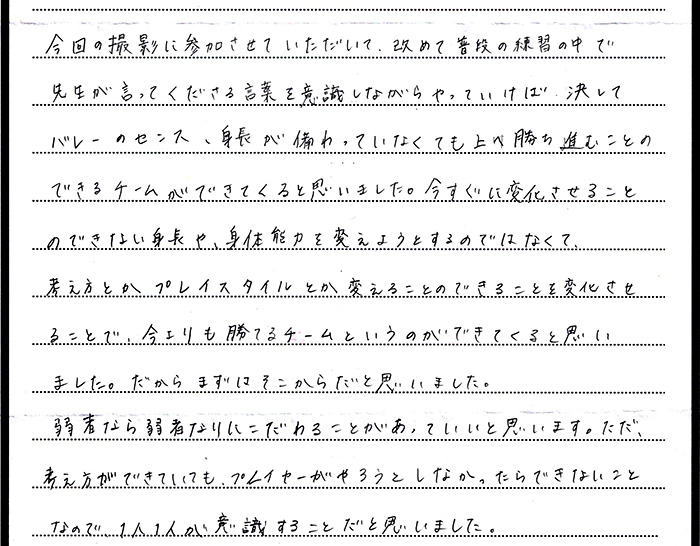 今回の撮影に参加させていただいて、改めて普段の練習の中で
先生が言ってくださる言葉を意識しながらやっていけば、決して
バレーのセンス、身長が備わっていなくても上へ勝ち進むことの
できるチームができてくると思いました。今すぐに変化させること
のできない身長や、身体能力を変えようとするのではなくて、
考え方とかプレイスタイルとか変えることのできることを変化させ
ることで、今よりも勝てるチームというのができてくると思い
ました。だからまずはそこからだと思いました。
弱者なら弱者なりにこだわることがあっていいと思います。ただ、
考え方ができていても、プレイヤーがやろうとしなかったらできないこと
なので、1人1人が意識することだと思いました。